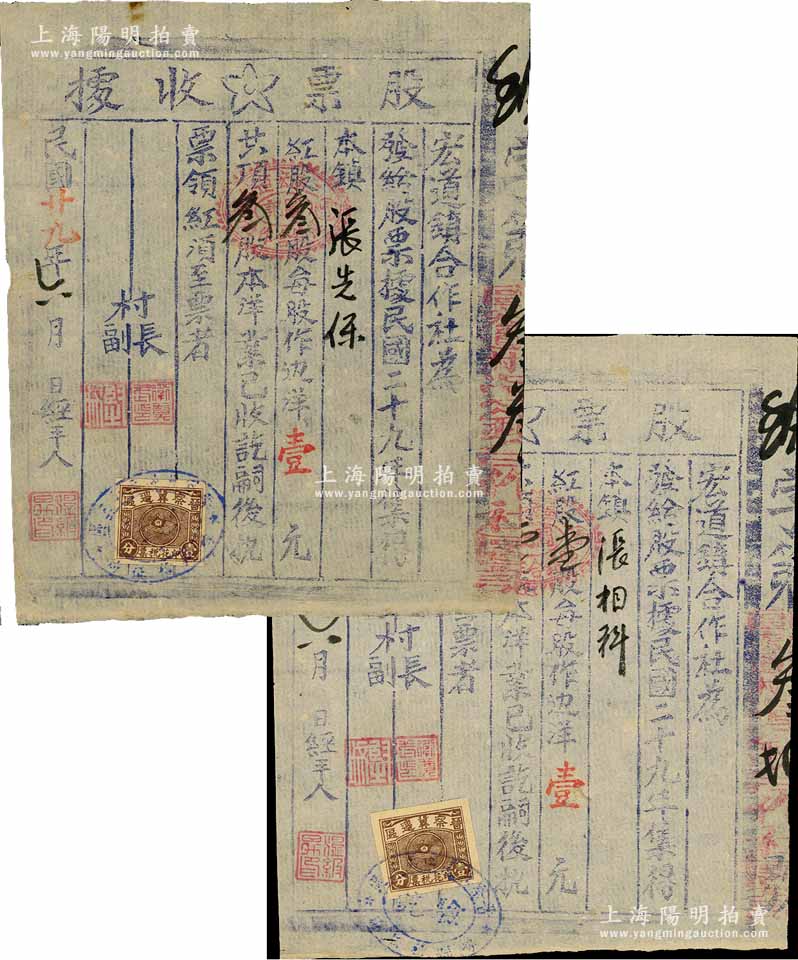 上海陽明拍賣
www.yangmingauction.com
股票☆收據
宏道鎮合作社為
發給股票據民國二十九年集得
本鎮 張先保
紅股叁股每股作边洋壹元
共項叁股本洋業已收訖嗣後執
票領紅須至票者
村長
副
民國廿九年 六月 日經手人
晉察冀邊區
壹分
上海陽明拍賣
www.yangmingauction.com
股票
宏道鎮合作社為
發給股票據民國二十九年集得
本鎮 張相科
紅股壹股每股作边洋壹元
本洋業已收訖嗣後執
票者
村長
副
六月 日經手人
晉察冀邊區
壹分
上海陽明拍賣
www.yangmingauction.com